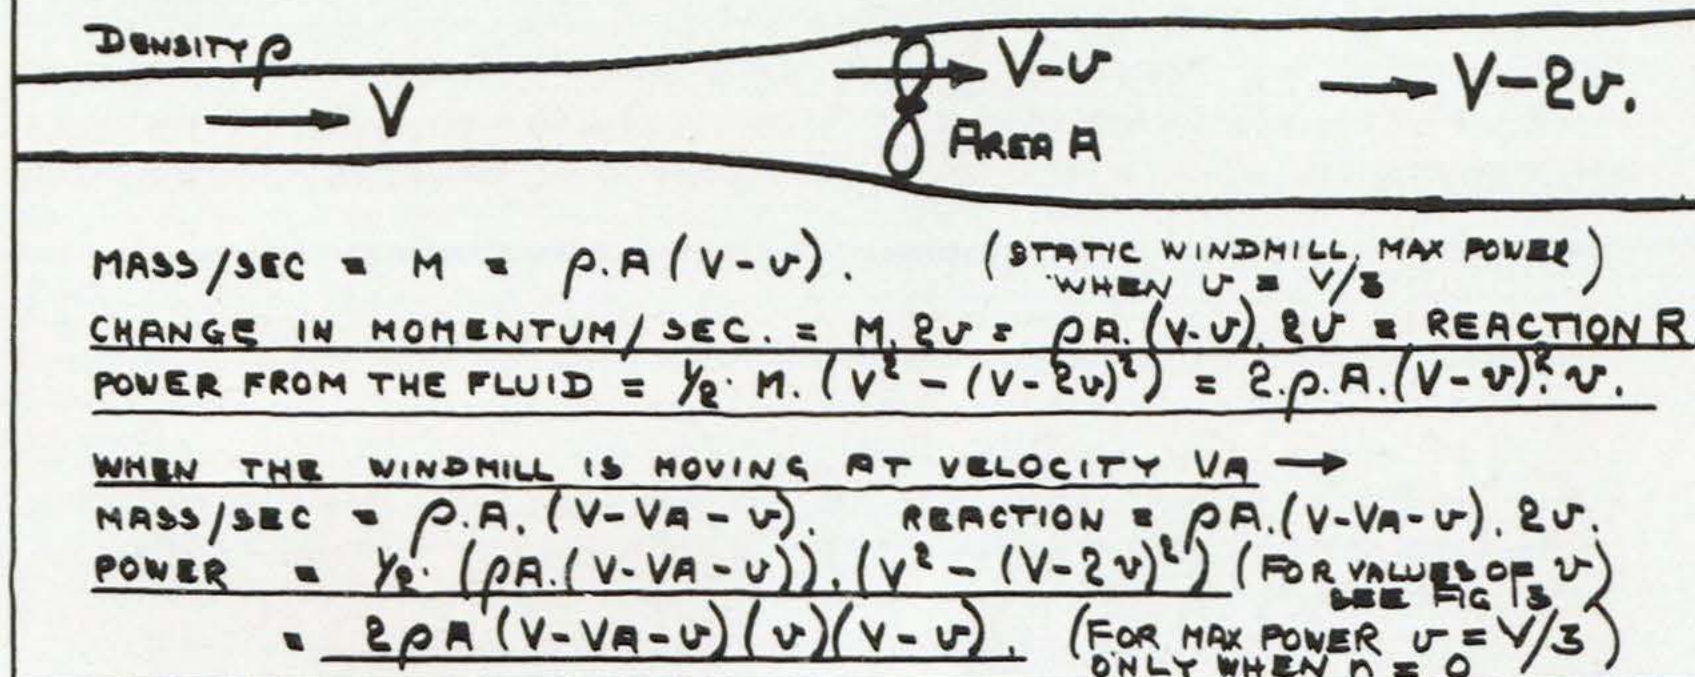 DENSITY ρ
V
V-v
V-2v.
AREA A
MASS/SEC = M = ρ.A(V-v). (STATIC WINDMILL, MAX POWER
WHEN v = V/3)
CHANGE IN MOMENTUM/SEC. = M.2v = ρA.(V-v).2v = REACTION R
POWER FROM THE FLUID = ½.M.(V²-(V-2v)²) = 2.ρ.A.(V-v)².v.
WHEN THE WINDMILL IS MOVING AT VELOCITY VA →
MASS/SEC = ρ.A.(V-VA-v). REACTION = ρA.(V-VA-v).2v.
POWER = ½.(ρA.(V-VA-v)).(V²-(V-2v)²) (FOR VALUES OF v
SEE FIG 13)
= 2ρA(V-VA-v)(v)(V-v). (FOR MAX POWER v = V/3
ONLY WHEN n = 0)